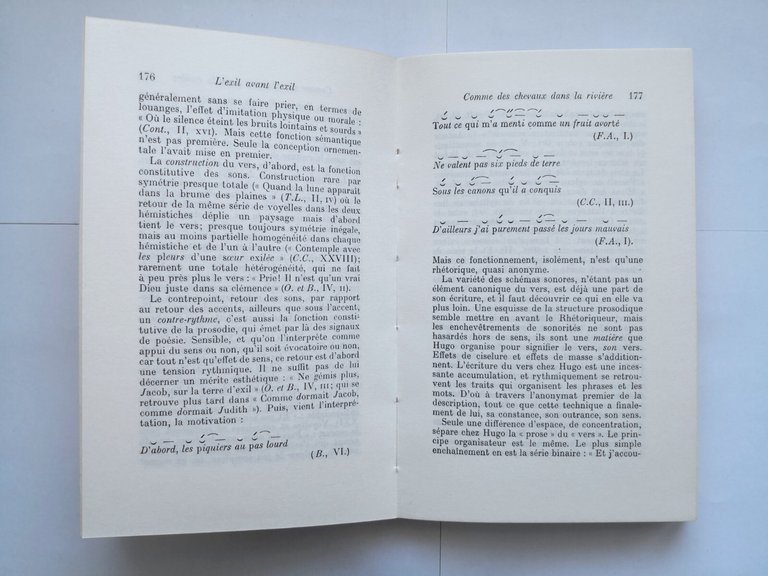 176
L'exil avant l'exil
généralement sans se faire prier, en termes de
louanges, l'effet d'imitation physique ou morale :
« Où le silence éteint les bruits lointains et sourds »
(Cont., II, XVI). Mais cette fonction sémantique
n'est pas première. Seule la conception ornemen-
tale l'avait mise en premier.
La construction du vers, d'abord, est la fonction
constitutive des sons. Construction rare par
symétrie presque totale (« Quand la lune apparaît
dans la brume des plaines » (T.L., II, IV) où le
retour de la même série de voyelles dans les deux
hémistiches déplie un paysage mais d'abord
tient le vers; presque toujours symétrie inégale,
mais au moins partielle homogénéité dans chaque
hémistiche et de l'un à l'autre (« Contemple avec
les pleurs d'une sœur exilée » (C.C., XXVIII);
rarement une totale hétérogénéité, qui ne fait
à peu près plus le vers : « Prie! Il n'est qu'un vrai
Dieu juste dans sa clémence » (O. et B., IV, II).
Le contrepoint, retour des sons, par rapport
au retour des accents, ailleurs que sous l'accent,
un contre-rythme, c'est aussi la fonction consti-
tutive de la prosodie, qui émet par là des signaux
de poésie. Sensible, et qu'on l'interprète comme
appui du sens ou non, qu'il soit évocatoire ou non,
car tout n'est qu'effet de sens, ce retour est d'abord
une tension rythmique. Il ne suffit pas de lui
décerner un mérite esthétique : « Ne gémis plus,
Jacob, sur la terre d'exil » (O. et B., IV, III; qui se
retrouve plus tard dans « Comme dormait Jacob,
comme dormait Judith »). Puis, vient l'interpré-
tation, la motivation :
D'abord, les piquiers au pas lourd
(B., VI.)
Comme des chevaux dans la rivière
177
Tout ce qui m'a menti comme un fruit avorté
(F.A., I.)
Ne valent pas six pieds de terre
Sous les canons qu'il a conquis
(C.C., II, III.)
D'ailleurs j'ai purement passé les jours mauvais
(F.A., I).
Mais ce fonctionnement, isolément, n'est qu'une
rhétorique, quasi anonyme.
La variété des schémas sonores, n'étant pas un
élément canonique du vers, est déjà une part de
son écriture, et il faut découvrir ce qui en elle va
plus loin. Une esquisse de la structure prosodique
semble mettre en avant le Rhétoriqueur, mais
les enchevêtrements de sonorités ne sont pas
hasardés hors de sens, ils sont une matière que
Hugo organise pour signifier le vers, son vers.
Effets de ciselure et effets de masse s'addition-
nent. L'écriture du vers chez Hugo est une inces-
sante accumulation, et rythmiquement se retrou-
vent les traits qui organisent les phrases et les
mots. D'où à travers l'anonymat premier de la
description, tout ce que cette technique a finale-
ment de lui, sa constance, son outrance, son sens.
Seule une différence d'espace, de concentration,
sépare chez Hugo la « prose » du « vers ». Le prin-
cipe organisateur est le même. Le plus simple
enchaînement en est la série binaire : « Et j'accou-